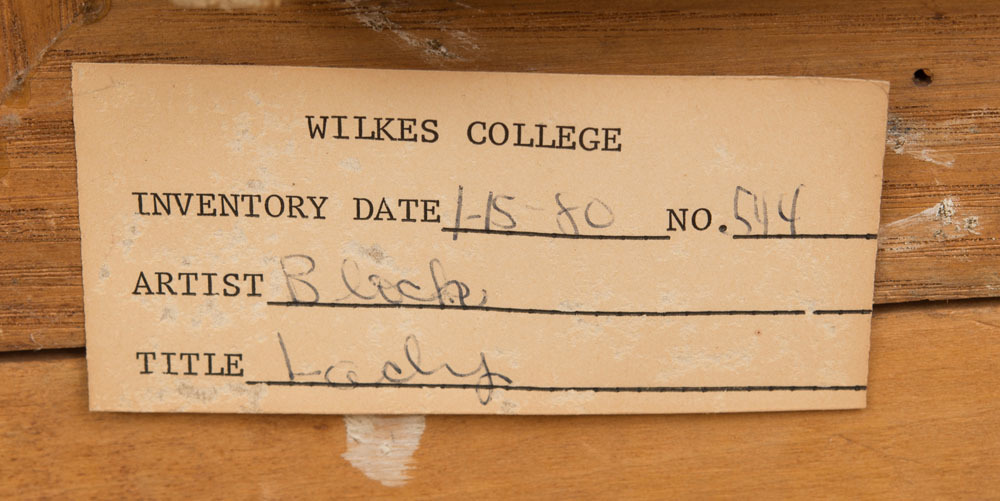 WILKES COLLEGE
INVENTORY DATE 1-15-80 NO. 544
ARTIST
TITLE Lady